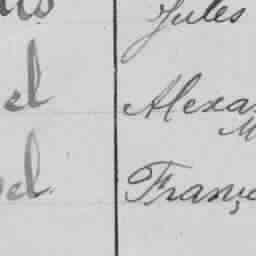 Jules
el Alexa
M
el Franç